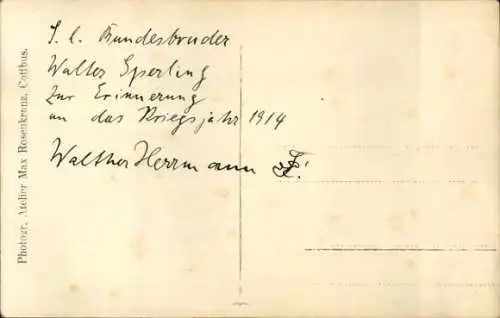 S. l. Bundesbruder
Walter Sperling
zur Erinnerung
an das Kriegsjahr 1914
Walther Herrmann
Photogr. Atelier Max Rosenkranz, Cottbus.